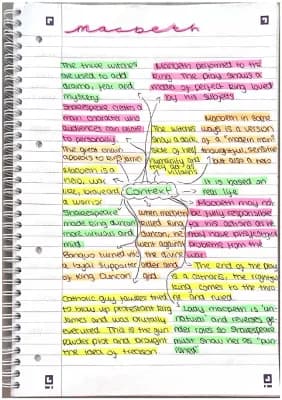 macbeth
The three witches
are used to add
drama, fear and
mystery
Macbeth performed to the
king. The play shows a
model of perfect king loved
by his subjects
Shakespeare creates a
main character who
audiences can relate
to personally.
The great chain
appeals to
The witches
show a dark
side of
humanity and
they act as
villains
Macbeth in some
ways is a version
of a modern man
thoughtful, sensitive
but also a hero
Macbeth is a
hero, war
like, brave and
a warrior
Context
It is based on
real life
Shakespeare
made king duncan
more virtuous and
mild.
when macbeth
killed king
Duncan, he
went against
the divine
order and
god
Macbeth may not
be fully responsible
for his actions as he
may have
problems from the
war
Banquo turned into
a loyal supporter
of King Duncan
The end of the play
is a catharsis, the rightful
king comes to the throne
and ruled.
Catholic guy fawkes tried
to blow up protestant king
James and was brutally
executed. This is the gun
powder plot and brought
the idea of treason
Lady macbeth is 'un
natural' and reverses ge
nder roles so Shakespeare
must show her as 'pun
ished'